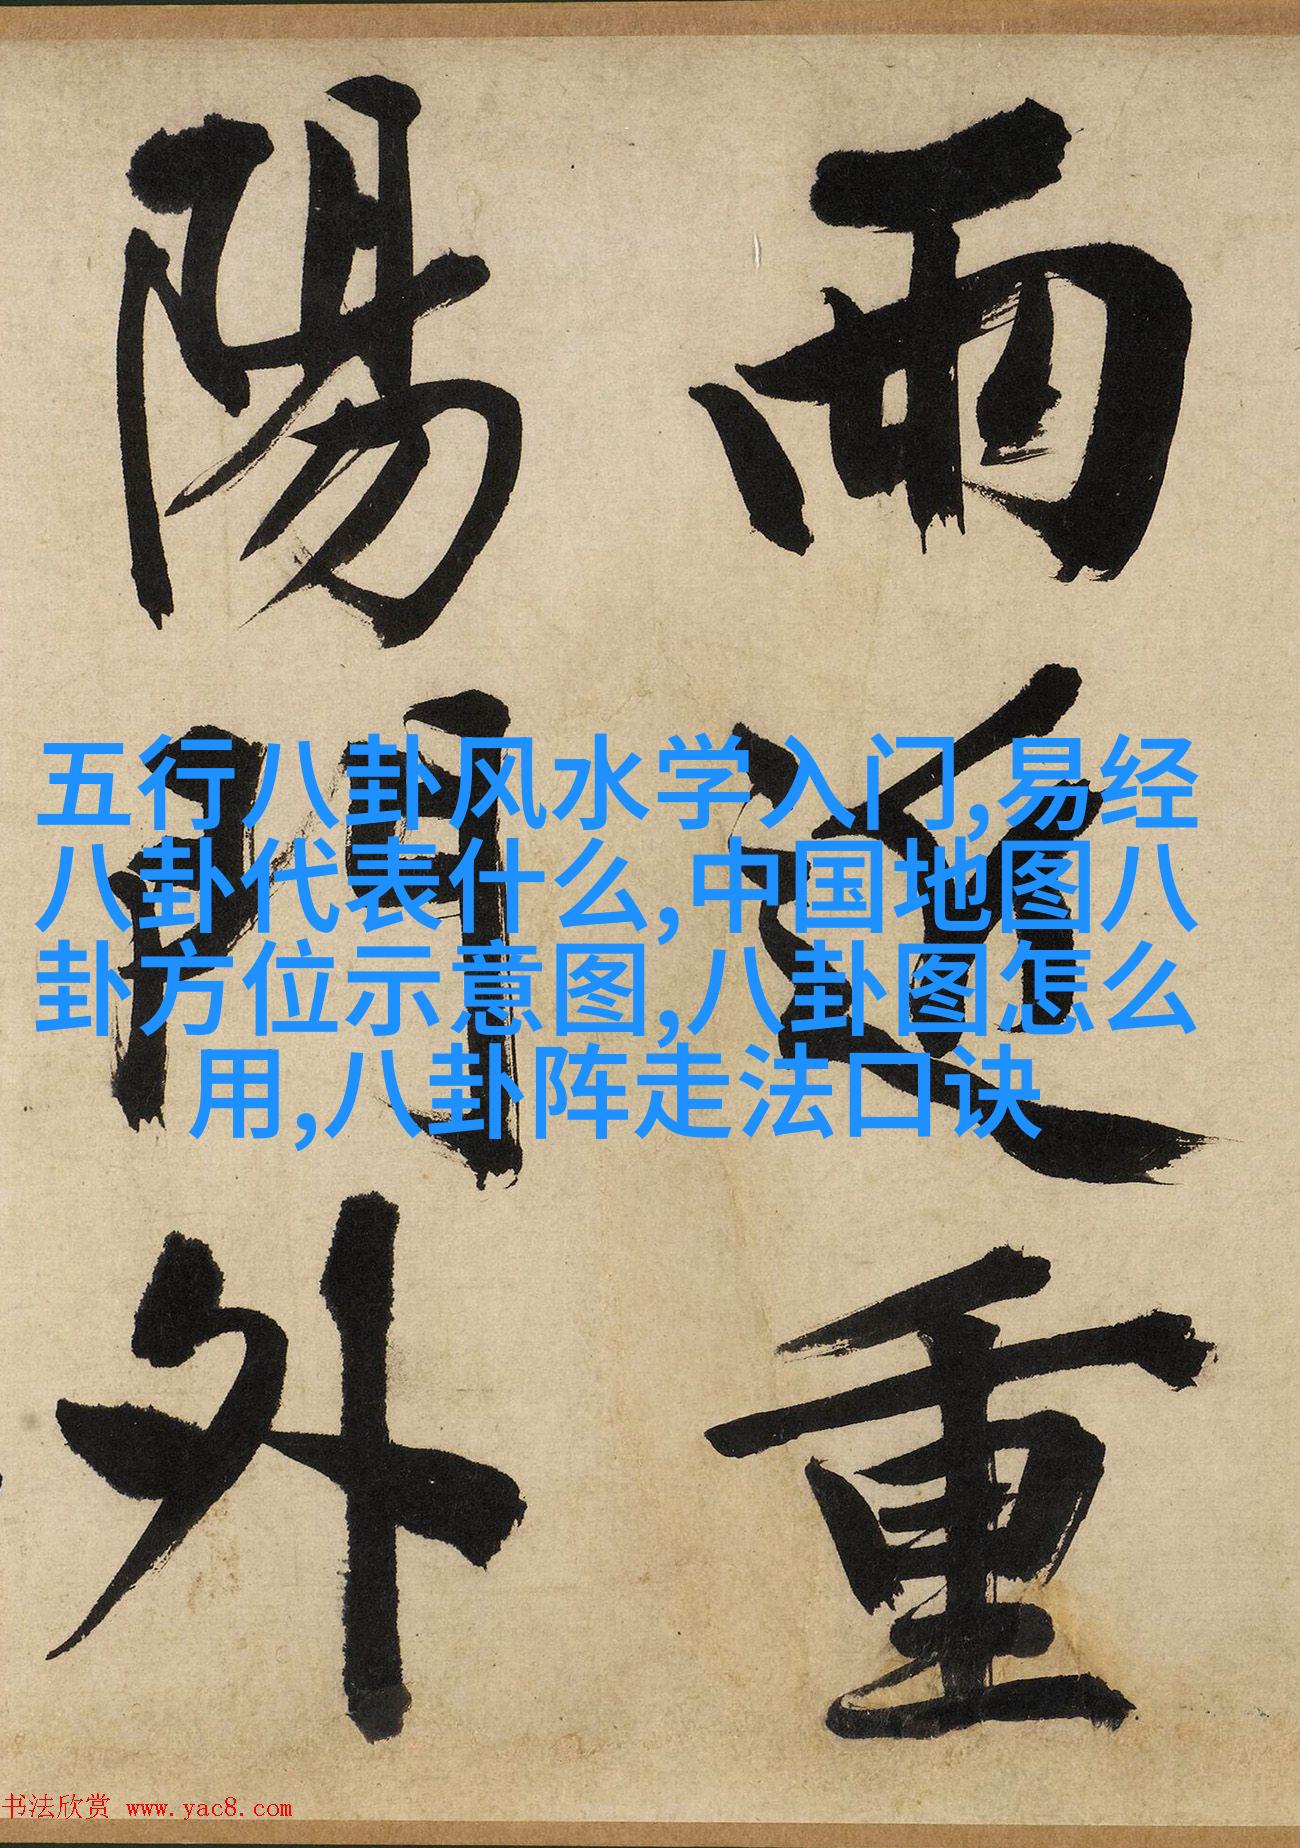 雨近重
陽門外
五行八卦风水学入门,易经
八卦代表什么,中国地图八
卦方位示意图,八卦图怎么
用,八卦阵走法口诀
书法欣赏 www.yac8.com